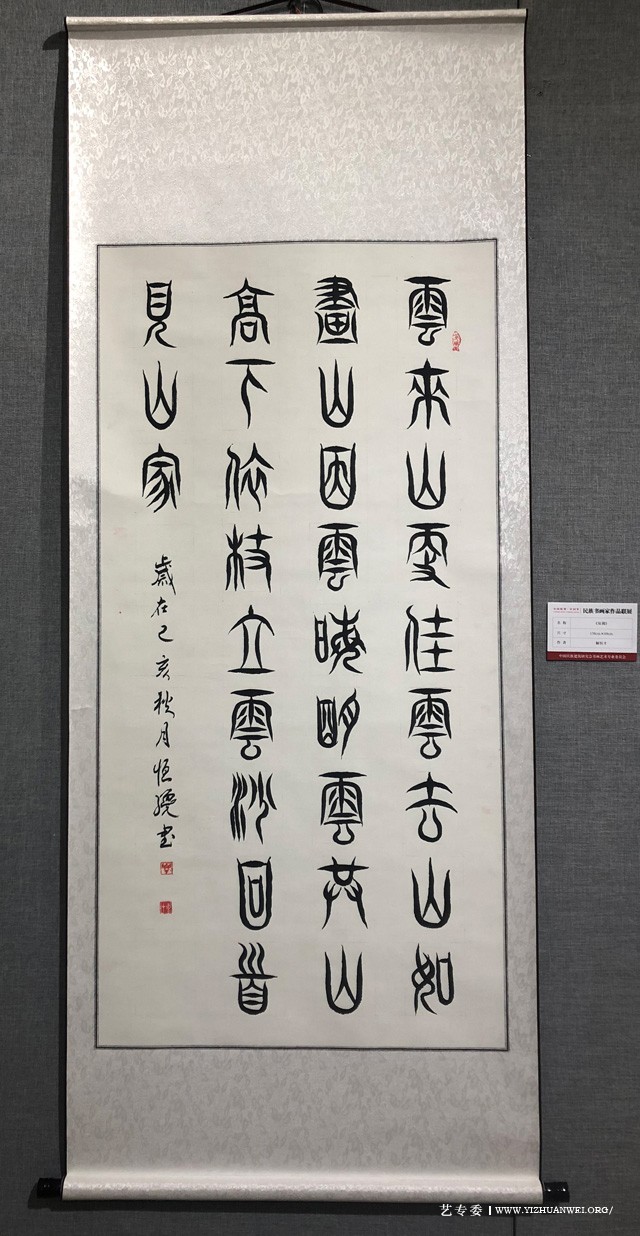 雲來山更佳雲去山如
畫山因雲晦明雲共山
高下依枝立雲沙回首
見山家
歲在己亥秋月恒書
民族书画家作品联展
艺专委 | WWW.YIZHUANWEI.ORG/